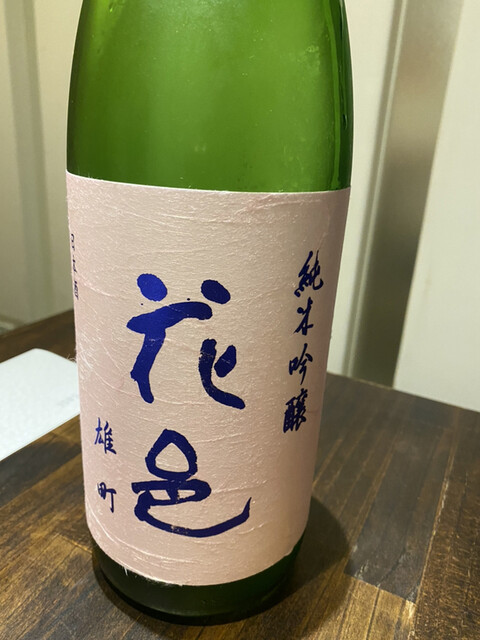 純米吟醸
花邑
雄町